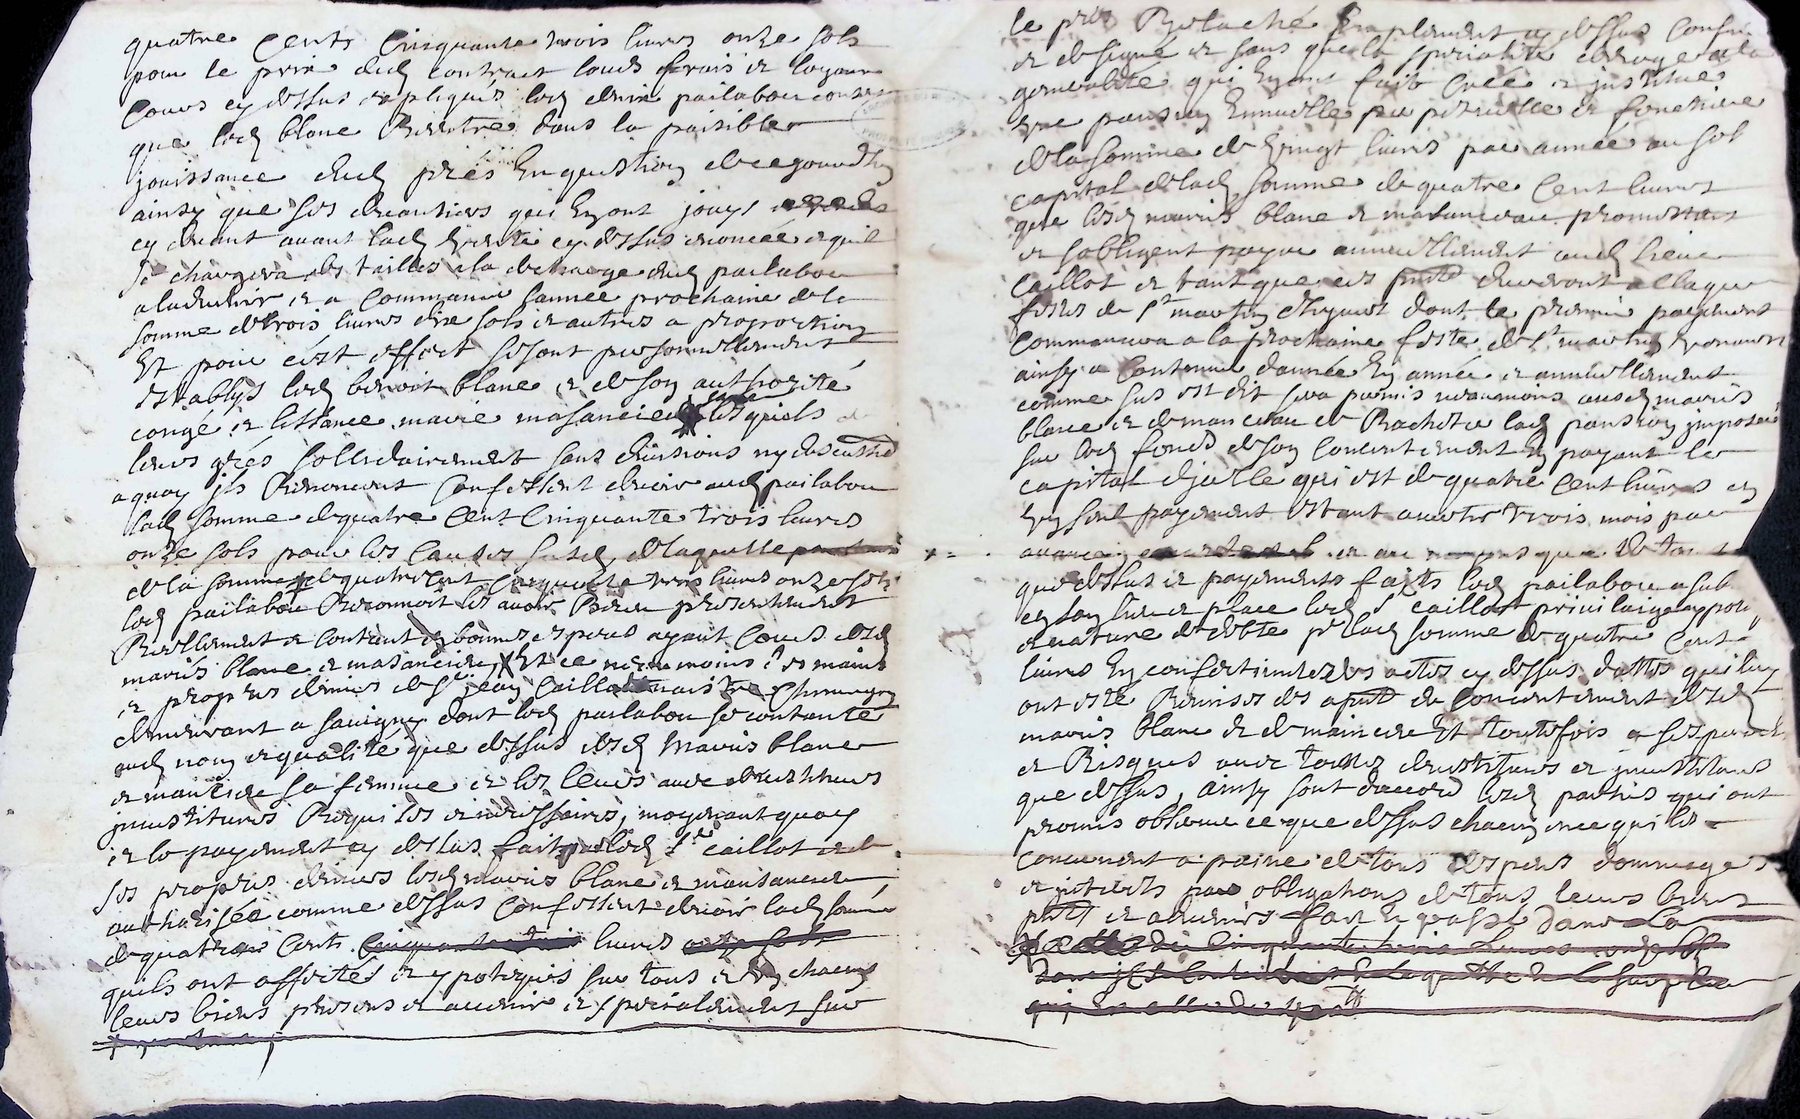 quatre Cents Cinquante trois livres onze sols
pour le prix dud contract louds frais et loyaux
Couts cy dessus expliqués led pailabou
que led blanc Rentre dans la paisible
jouissance dud prés En question de ce jourdhuy
ainsy que ses devantiers qui En ont jouys
cy devant avant lad vente cy dessus enoncée et quil
Se chargera des tailles a la decharge dud pailabou
a ladvenir et a Commancer lannée prochaine de la
somme de trois livres dix sols et autres a proportion
Et pour cest effect se sont personnellement
Establys led benoit blanc et de son authorité
congé et licence marie masanciere lesquels
leurs grés sollidairement sans divisions ny discution
a quoy ils Renoncent Confessent devoir aud pailabou
lad somme de quatre Cent Cinquante trois livres
onze sols pour les Causes susd de laquelle
de la somme de quatre Cent Cinquante trois livres onze sols
led pailabou Reconnoit les avoir Receu presentement
Reellement et Contant en bonnes especes ayant Cours desd
mariés blanc et masanciere, Et ce neanmoins des mains
et propres deniers de Sr jean Caillot maistre Chirurgien
demeurant a savigny dont led pailabou se contante
aud nom et qualité que dessus desd mariés blanc
et manciere sa femme et les leurs avec devestitures
investitures Requises et necessaires, moyenant quoy
et le payement cy dessus fait par led Sr caillot de
ses propres deniers lesd mariés blanc et mansanciere
authorisée comme dessus Confessent devoir lad somme
de quatre Cents livres
quils ont affectés et ypotequés sur tous et un chacun
leurs biens presens et advenir et specialement sur
le pred Relaché Emplement cy dessus Confiné
et designé et sans que la specialité deroge a la
generalité qui En ont fait Creé et justitué
une pansion Annuelle perpetuelle et fonciere
de la somme de Vingt livres par année au sol
capital de lad somme de quatre Cent livres
que lesd mariés blanc et masanciere promettent
et sobligent payer annuellement aud sieur
Caillot et tant que ces pntes dureront a Chaque
festes de St martin dhyver dont le premier payement
Commancera a la prochaine feste de St martin
ainsy a Continuer dannée En année et annuellement
comme sus est dit sera permis neanmoins ausd mariés
blanc et de manciere de Racheter lad pansion imposée
sur led fond de son Consentement En payant le
capital dicelle qui est de quatre Cent livres
En un seul payement Estant avertis trois mois par
avance et au moyens que de tout
que dessus et payements faits led pailabou a sub
en son lieu et place led Sr caillot privilaige ypoteque
et nature de debte pr lad somme de quatre Cent
livres En confortiment des actes cy dessus dattés qui luy
ont esté Remises des a pnt du Consentement desd
mariés blanc et de manciere Et toutefois a ses perils
et Risques avec toutes devestitures et investitures
que dessus, ainsy sont daccord lesd parties qui ont
promis observer ce que dessus chacun en ce qui les
Concernent a paine de tous despens dommages
et interests par obligations de tous leurs biens
pnts et advenirs fait Et passé dans la